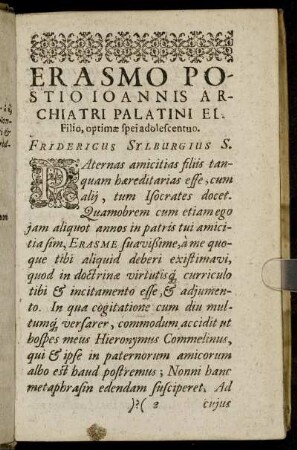 ERASMO PO-
STIO IOANNIS AR-
CHIATRI PALATINI EL.
Filio, optimæ spei adolescentuo.
FRIDERICUS SYLBURGIUS S.
PAternas amicitias filiis tan-
quam hæreditarias esse, cum
alij, tum Isocrates docet.
Quamobrem cum etiam ego
jam aliquot annos in patris tui amici-
tia sim, ERASME suavissime, a me quo-
que tibi aliquid deberi existimavi,
quod in doctrinæ virtutisq; curriculo
tibi & incitamento esse, & adjumen-
to. In qua cogitatione cum diu mul-
tumq; versarer, commodum accidit ut
hospes meus Hieronymus Commelinus,
qui & ipse in paternorum amicorum
albo est haud postremus; Nonni hanc
metaphrasin edendam susciperet. Ad
)?( 2 cujus